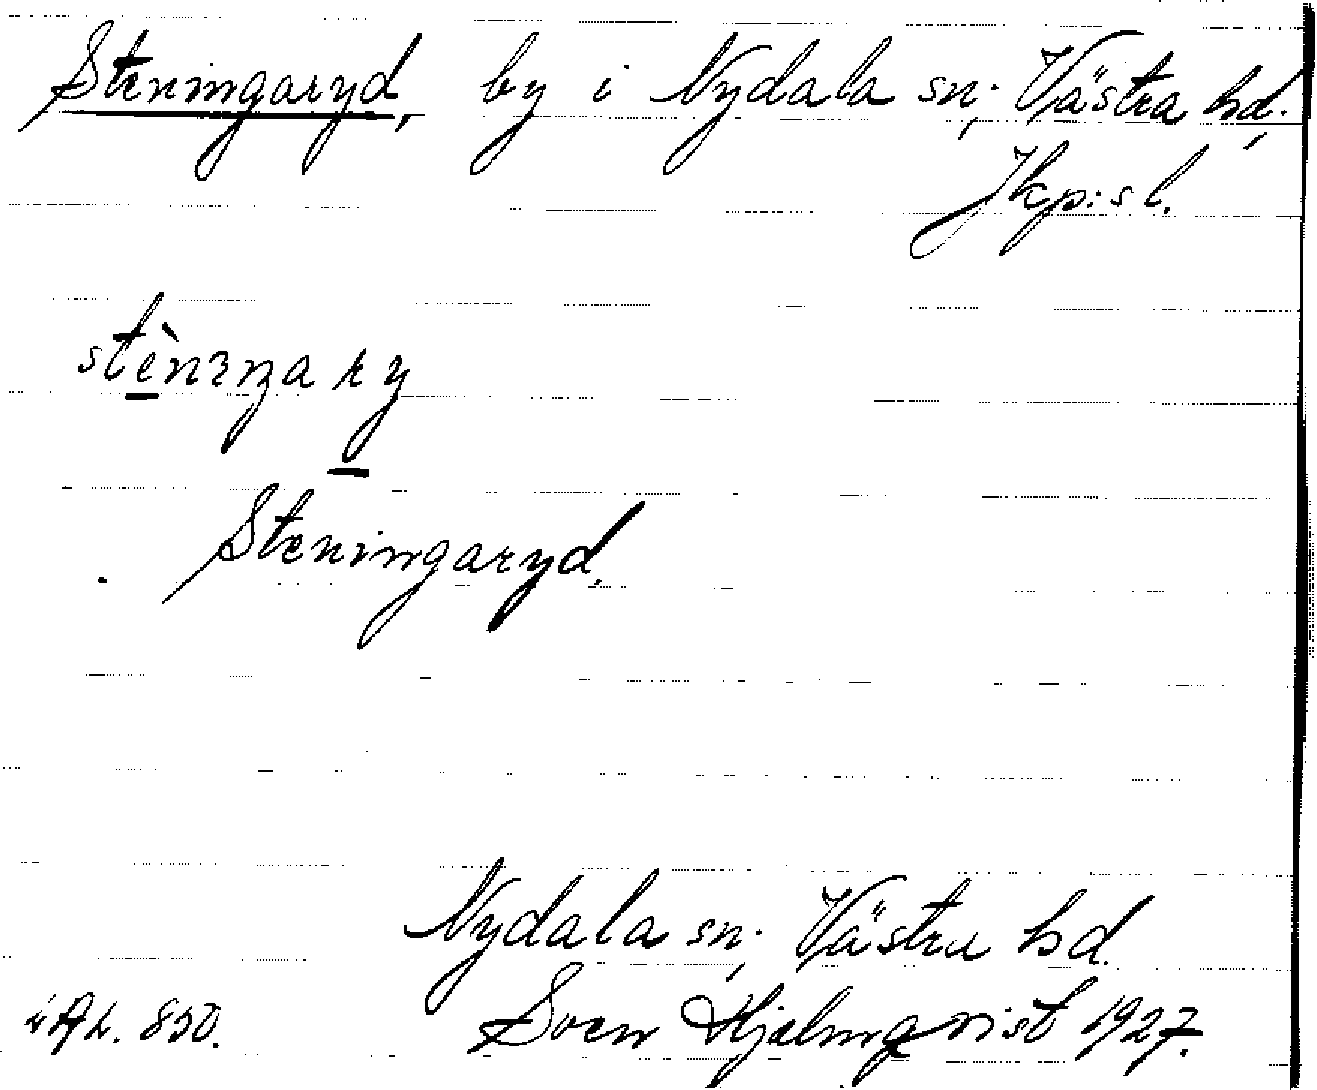 Steningaryd, by i Nydala sn; Västra hd;
Jkp:s l.
stènıŋary
Steningaryd.
Nydala sn; Västra hd.
Sven Hjelmqvist 1927.
850.